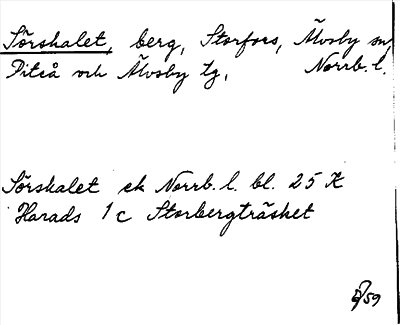 Sörskalet, berg, Storfors, Älvsby sn,
Piteå och Älvsby tg, Norrb. l.
Sörskalet ek Norrb. l. bl. 25 K
Harads 1 c Storbergträsket
/59